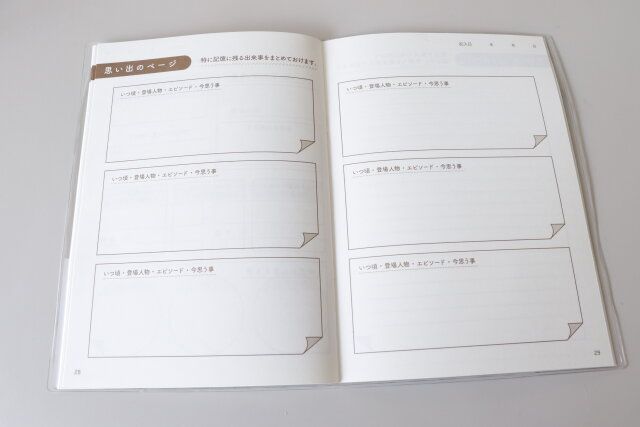 思い出のページ
特に記憶に残る出来事をまとめておけます。
いつ頃・登場人物・エピソード・今思う事
いつ頃・登場人物・エピソード・今思う事
いつ頃・登場人物・エピソード・今思う事
28
記入日 年 月 日
いつ頃・登場人物・エピソード・今思う事
いつ頃・登場人物・エピソード・今思う事
いつ頃・登場人物・エピソード・今思う事
29